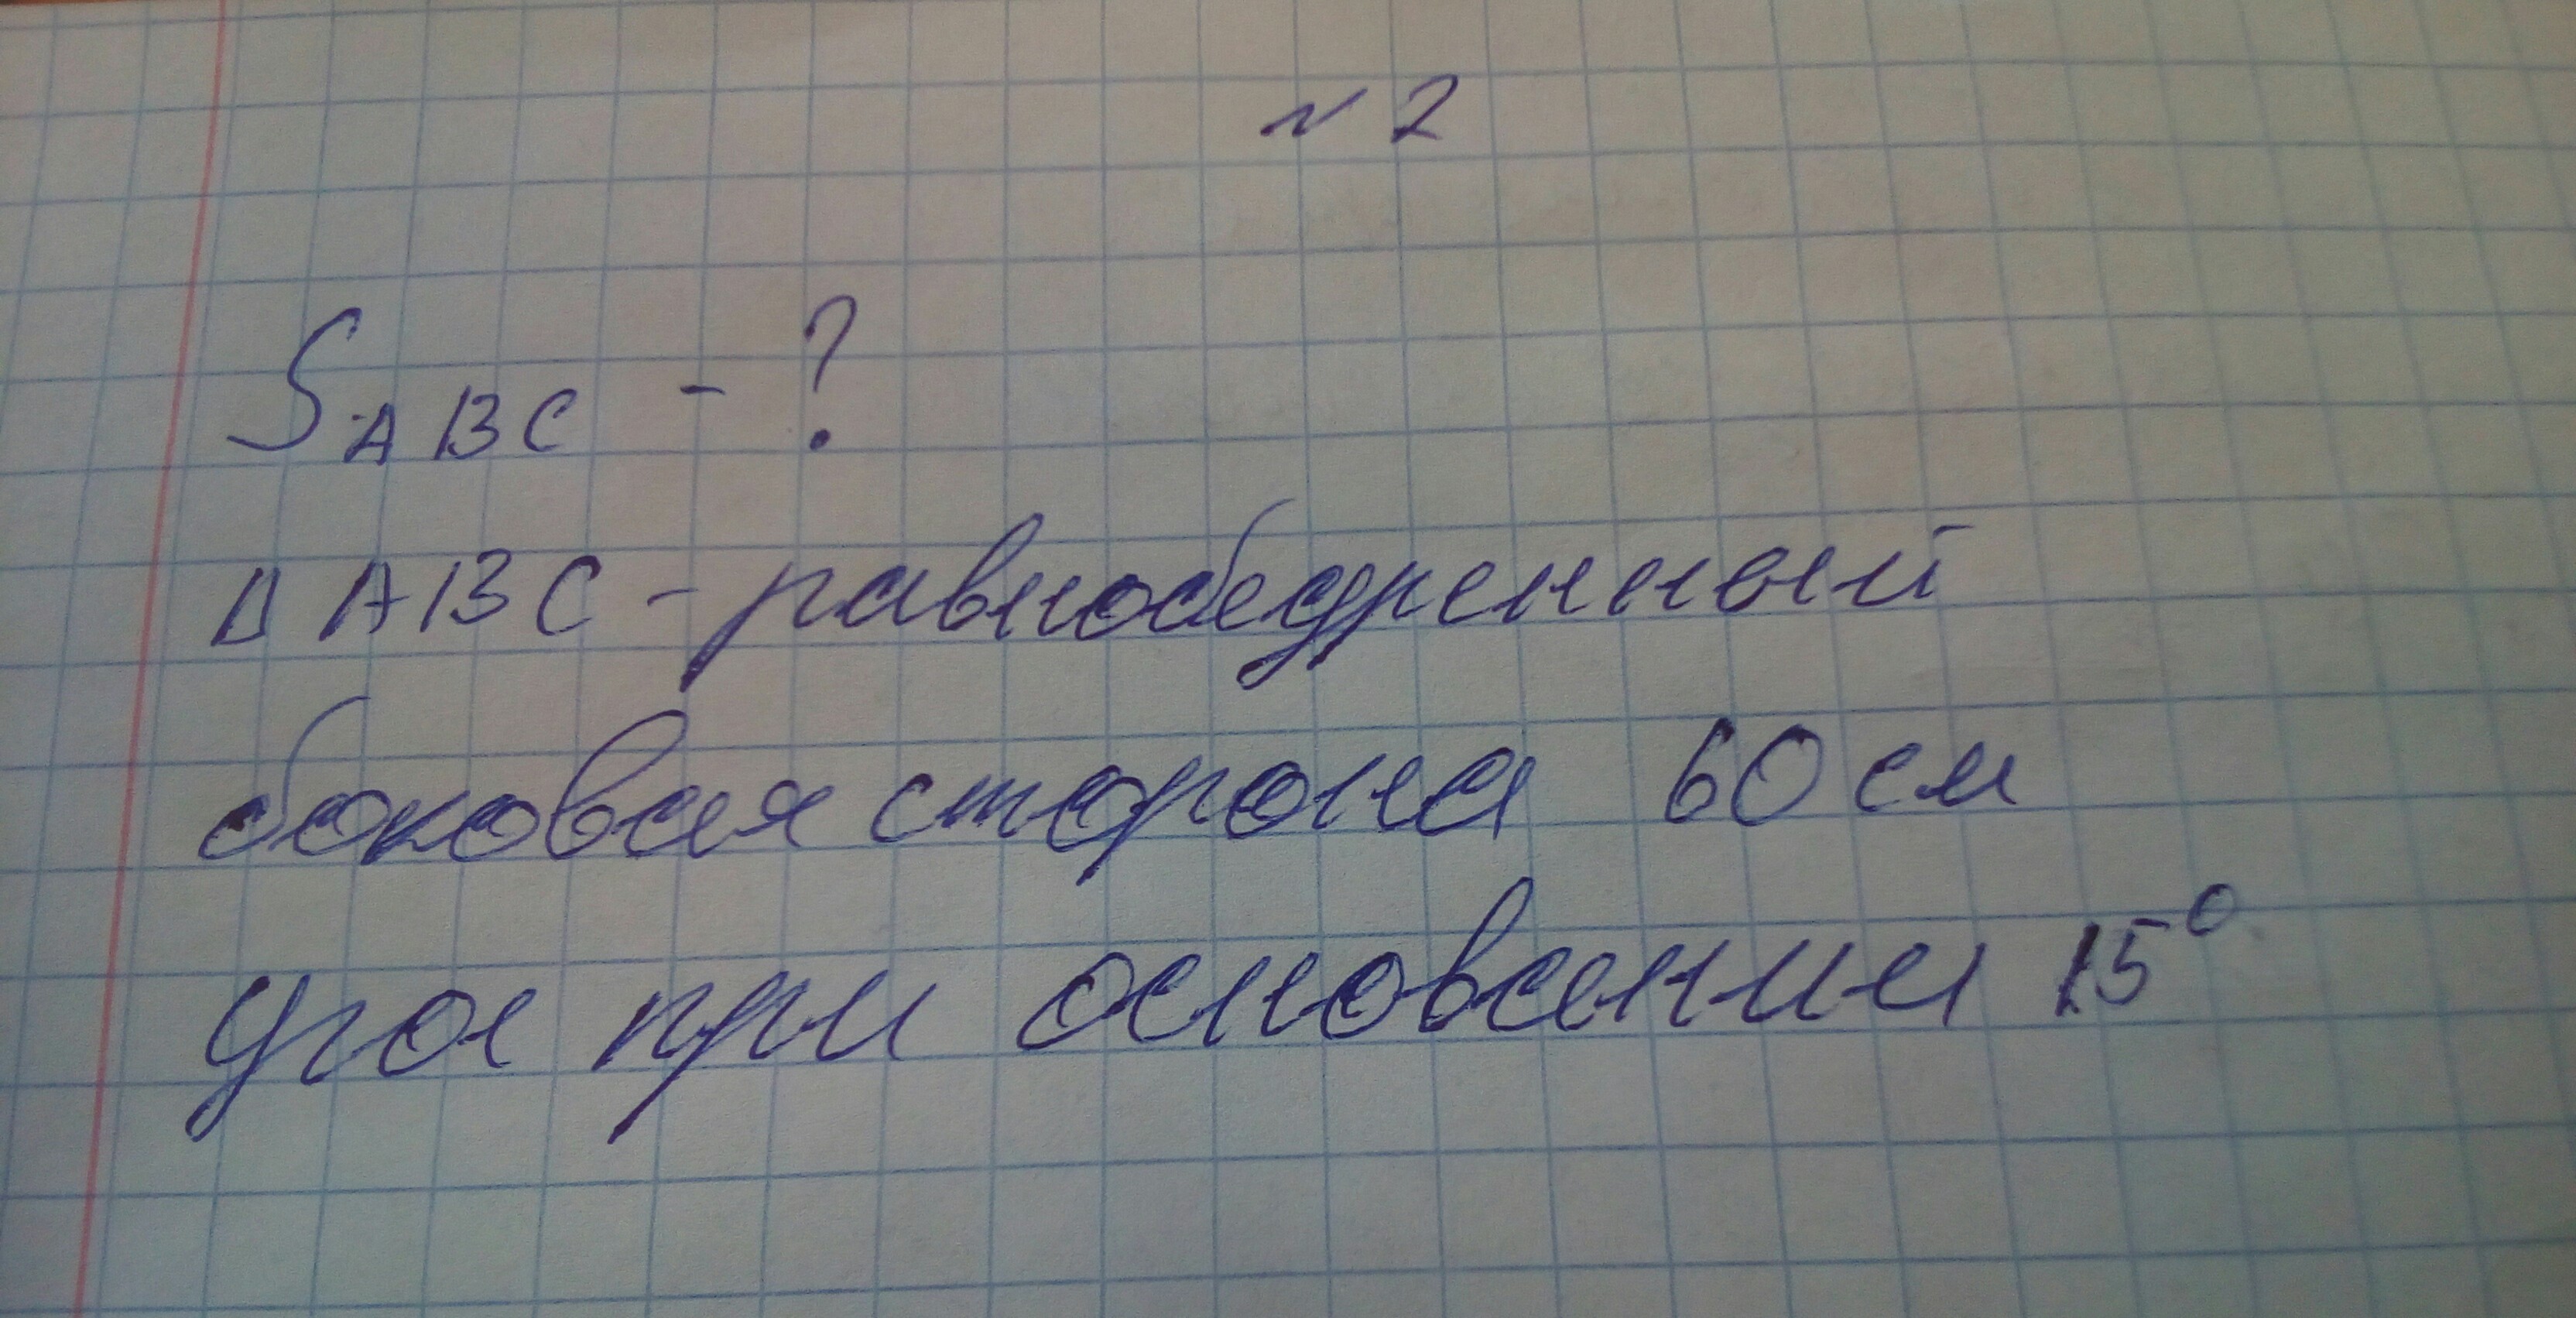 N 2
S ABC - ?
Δ ABC - равнобедренный
боковая сторона 60 см
угол при основании 15°